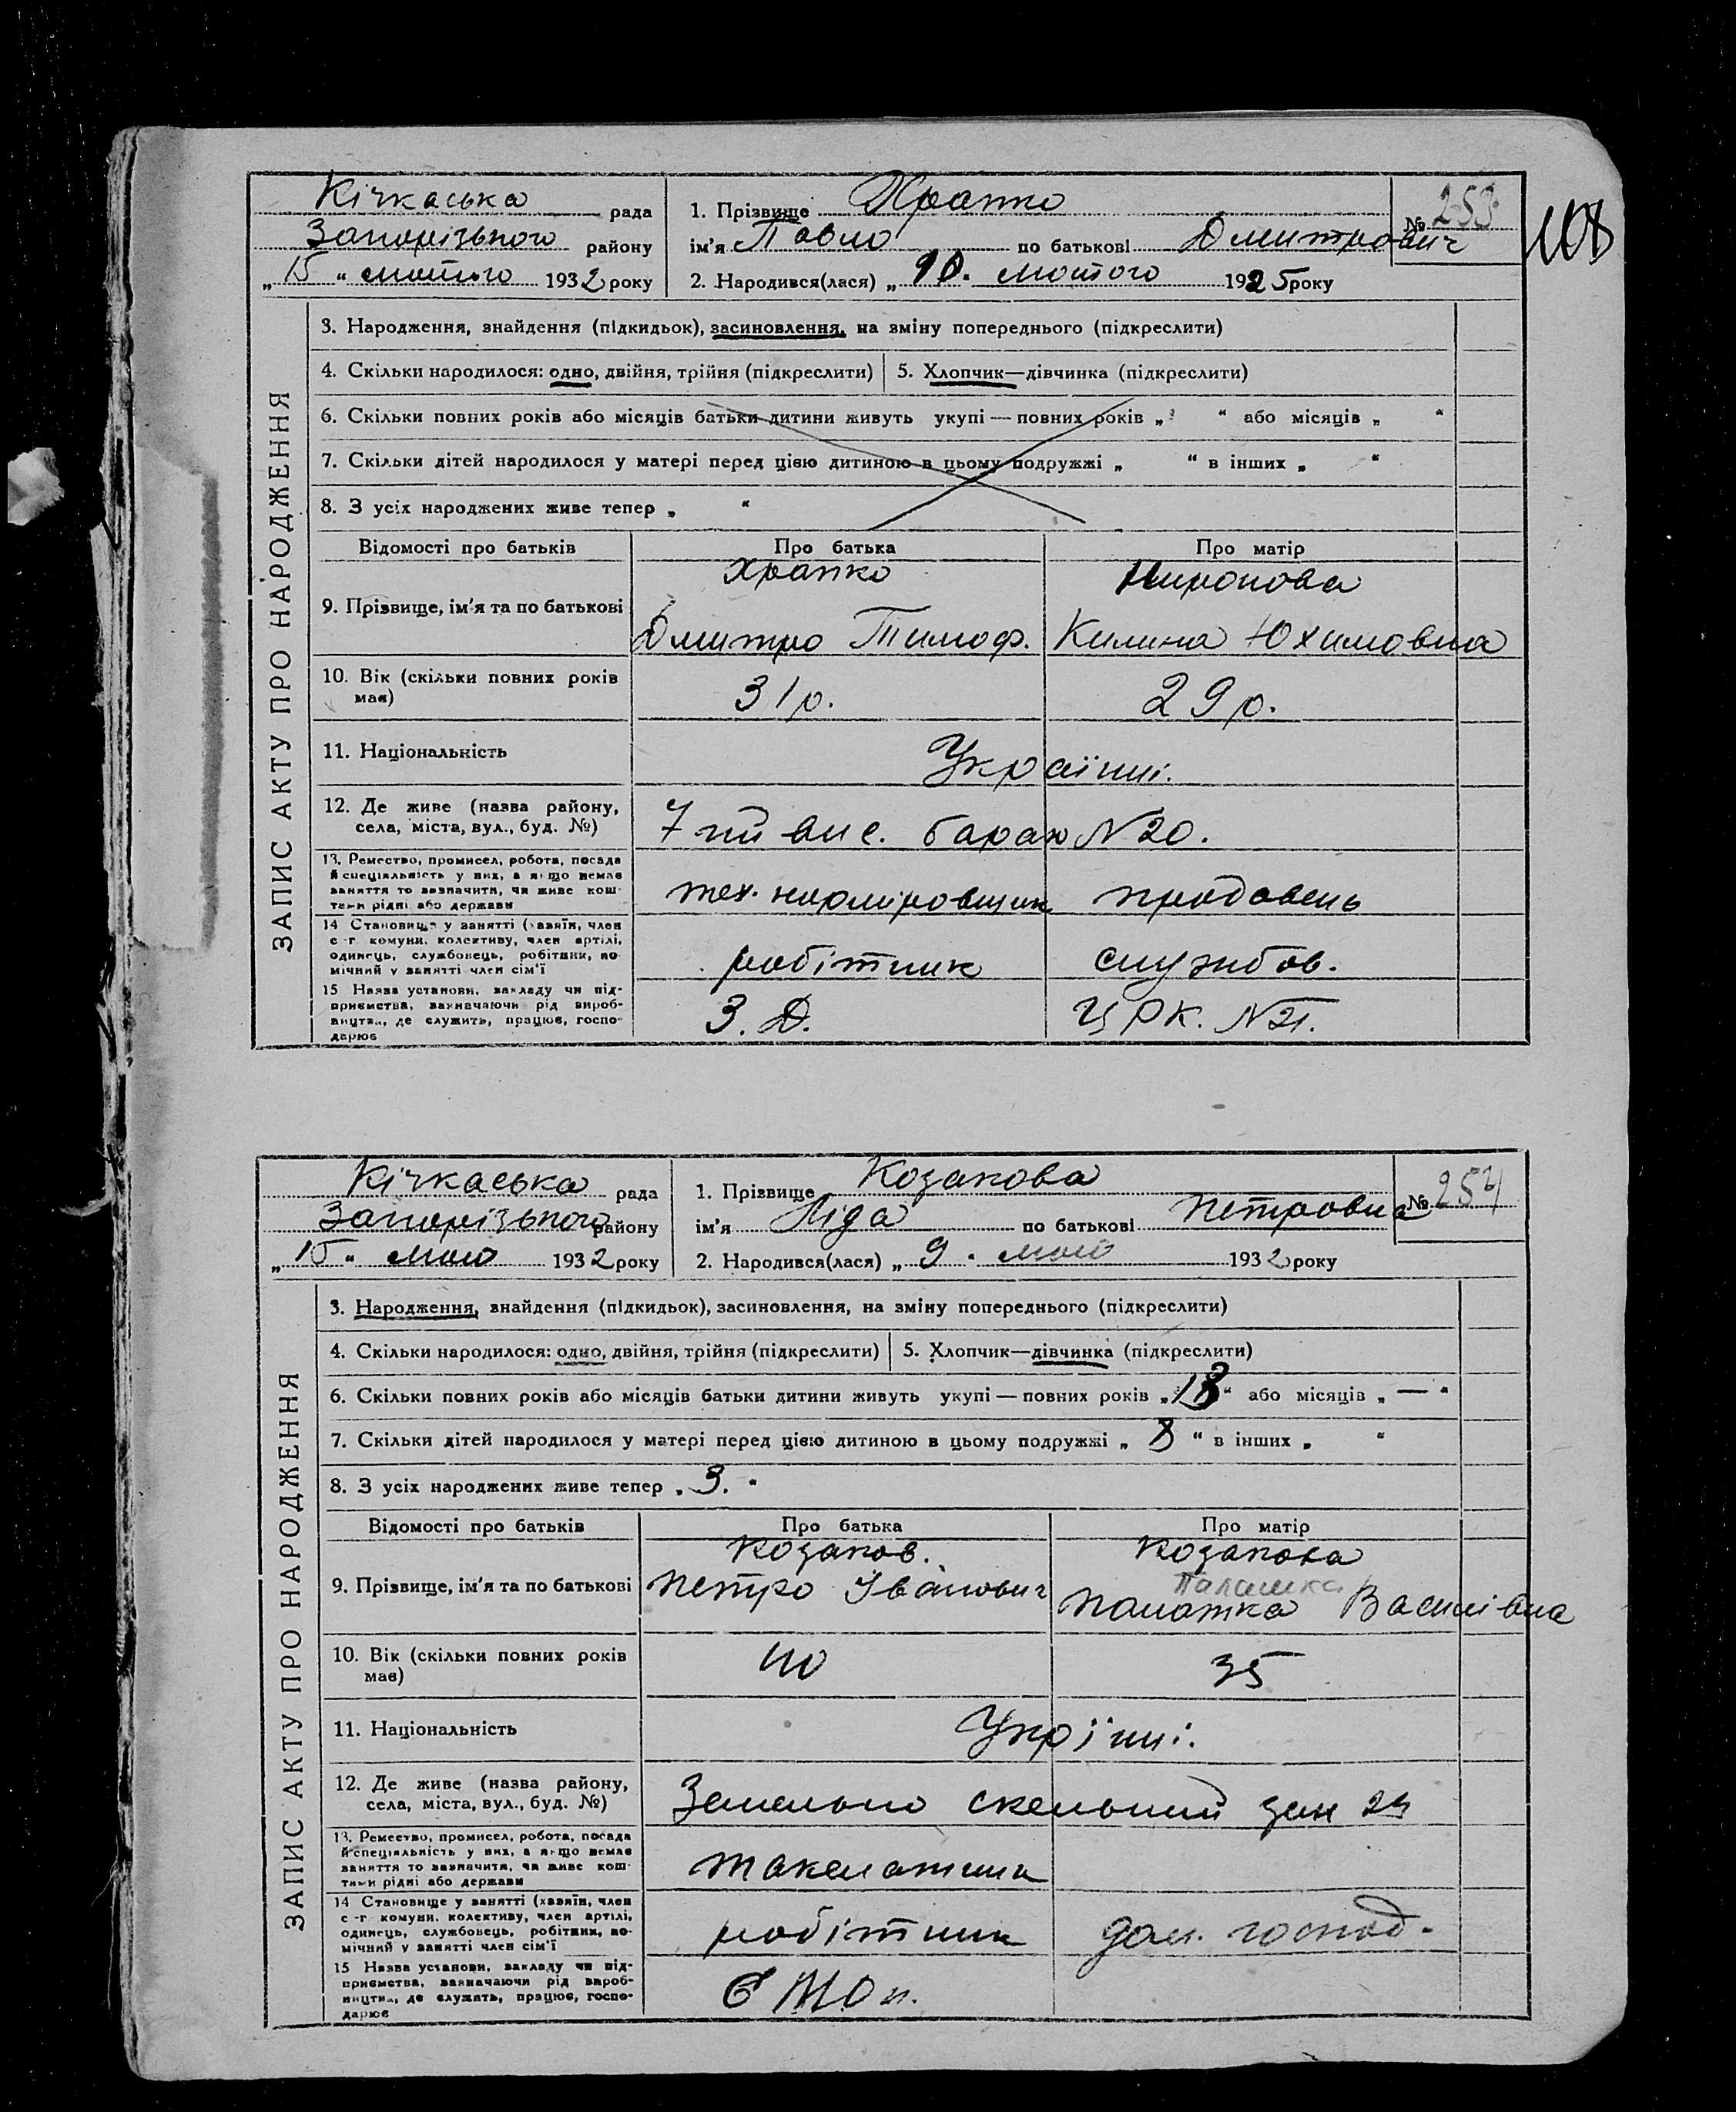 Кічкаська рада
Запорізького району
„15“ лютого 1932 року
1. Прізвище Храпко
ім'я Павло по батькові Дмитрович
№ 253
108
2. Народився(лася) „10. лютого 1925 року
ЗАПИС АКТУ ПРО НАРОДЖЕННЯ
3. Народження, знайдення (підкидьок), засиновлення, на зміну попереднього (підкреслити)
4. Скільки народилося: одно, двійня, трійня (підкреслити) 5. Хлопчик—дівчинка (підкреслити)
6. Скільки повних років або місяців батьки дитини живуть укупі — повних років „ “ або місяців „ “
7. Скільки дітей народилося у матері перед цією дитиною в цьому подружжі „ “ в інших „ “
8. З усіх народжених живе тепер „ “
Відомості про батьків Про батька Про матір
9. Прізвище, ім'я та по батькові
Храпко Миронова
Дмитро Тимоф. Килина Юхимовна
10. Вік (скільки повних років має) 31 р. 29 р.
11. Національність Українці.
12. Де живе (назва району, села, міста, вул., буд. №) 7 вис. барак №20.
13. Ремество, промисел, робота, посада й спеціяльність у них, а якщо немає заняття то зазначити, чи живе коштами рідні або держави
тех. норміровщик продавець
14 Становище у занятті (хазяїн, член с.-г. комуни, колективу, член артілі, одинець, службовець, робітник, помічний у занятті член сім'ї
робітник службов.
15 Назва установи, закладу чи підприємства, зазначаючи рід виробництва, де служить, працює, господарює
З. Д. ЦРК. №21.
Кічкаська рада
Запорізького району
„15“ 1932 року
1. Прізвище Козакова
ім'я Ліда по батькові Петровна
№ 254
2. Народився(лася) „9. 1932 року
ЗАПИС АКТУ ПРО НАРОДЖЕННЯ
3. Народження, знайдення (підкидьок), засиновлення, на зміну попереднього (підкреслити)
4. Скільки народилося: одно, двійня, трійня (підкреслити) 5. Хлопчик—дівчинка (підкреслити)
6. Скільки повних років або місяців батьки дитини живуть укупі — повних років „18“ або місяців „—“
7. Скільки дітей народилося у матері перед цією дитиною в цьому подружжі „8“ в інших „ “
8. З усіх народжених живе тепер „3.“
Відомості про батьків Про батька Про матір
9. Прізвище, ім'я та по батькові
Козаков. Козакова
Палашка
Петро Іванович Палажка Василівна
10. Вік (скільки повних років має) 40 35
11. Національність Україні.
12. Де живе (назва району, села, міста, вул., буд. №) скельний 24
13. Ремество, промисел, робота, посада й спеціяльність у них, а якщо немає заняття то зазначити, чи живе коштами рідні або держави
такелажник
14 Становище у занятті (хазяїн, член с.-г. комуни, колективу, член артілі, одинець, службовець, робітник, помічний у занятті член сім'ї
робітник дом. господ.
15 Назва установи, закладу чи підприємства, зазначаючи рід виробництва, де служать, працює, господарює